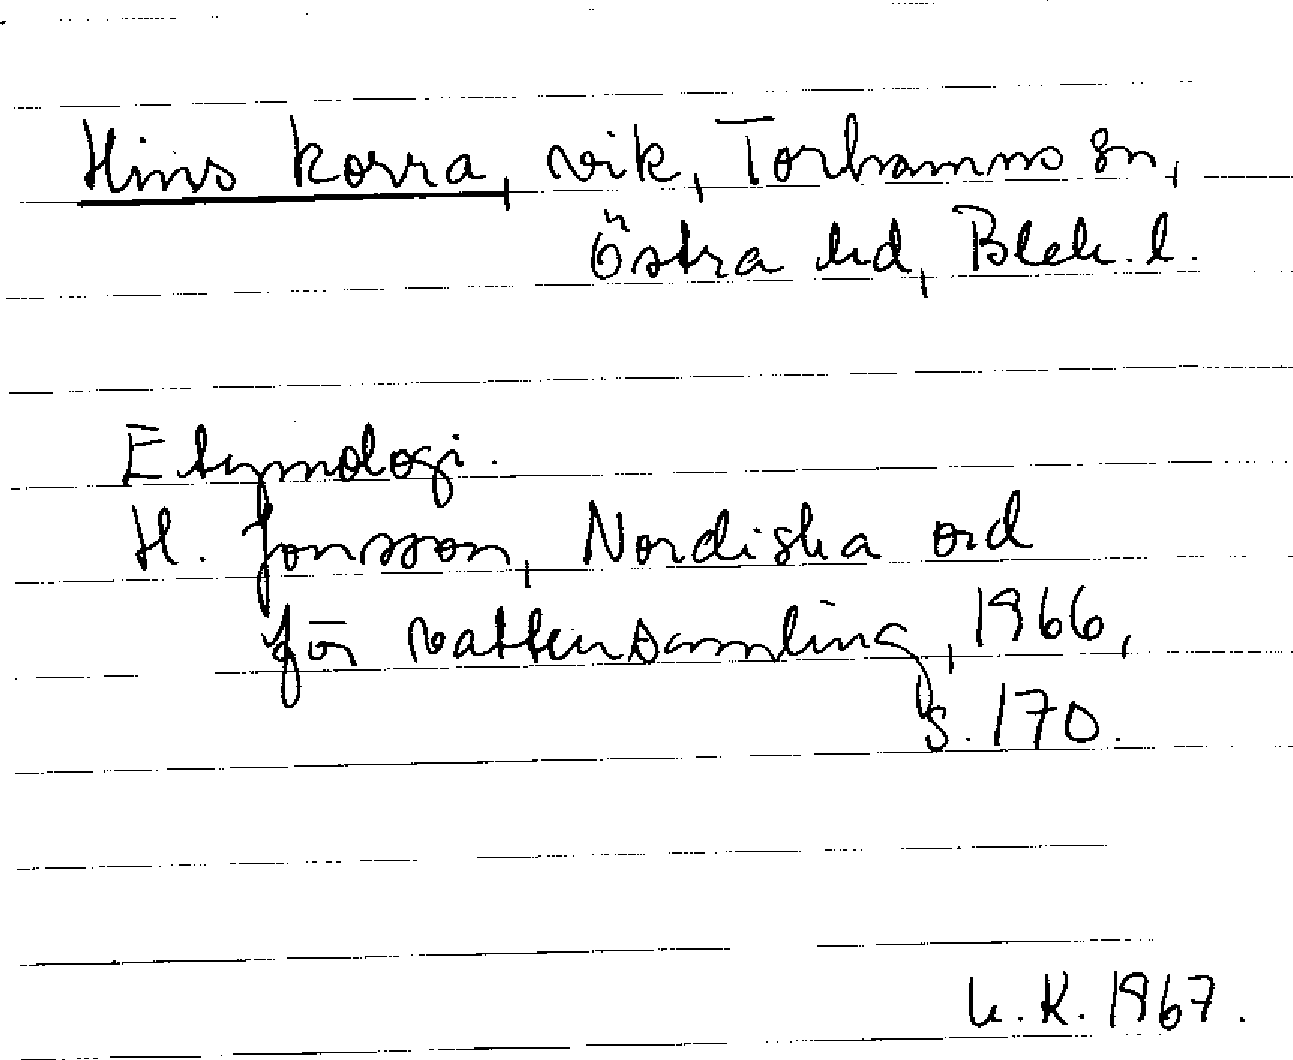 Hins korra, vik, Torhamns sn,
Östra hd, Blek. l.
Etymologi.
H. Jonsson, Nordiska ord
för vattensamling, 1966,
s. 170.
K. 1967.